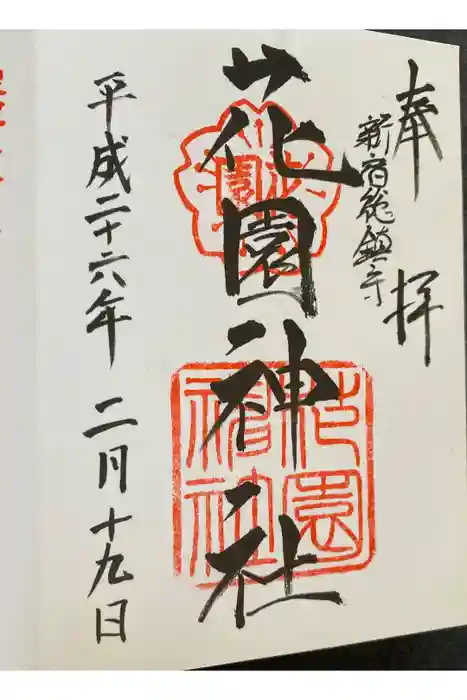 奉拝
新宿総鎮守
花園神社
花園
花園
神社
平成二十六年 二月十九日